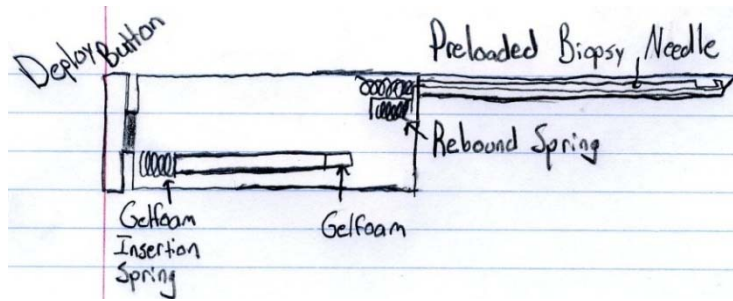 Deploy Button
Preloaded Biopsy Needle
Rebound Spring
Gelfoam
Insertion
Spring
Gelfoam